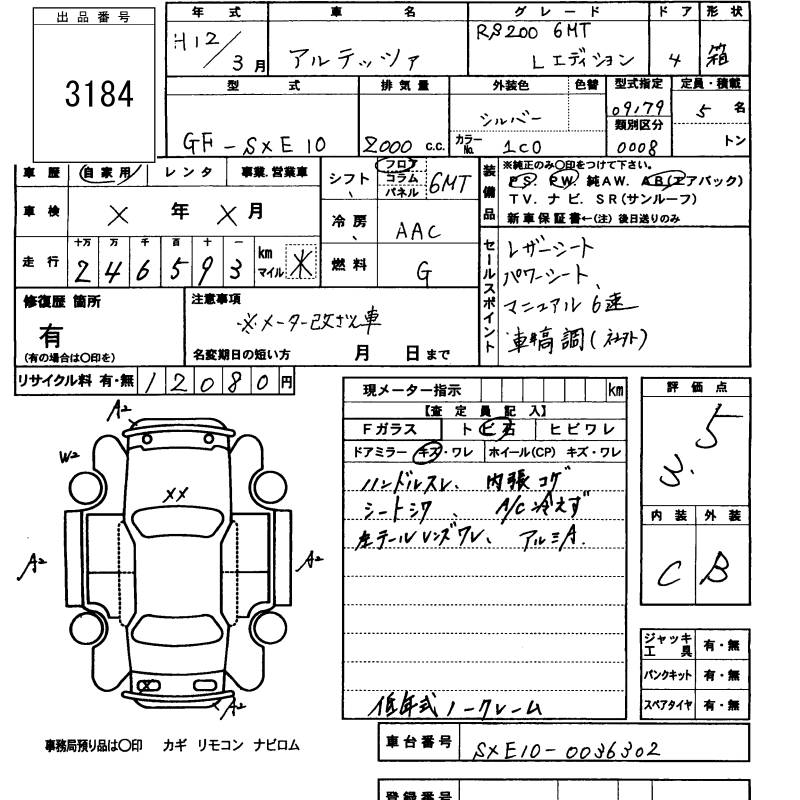 出品番号
3184
年式
車名
グレード
ドア
形状
H12/3月
アルテッツァ
RS200 6MT
Lエディション
4
箱
型式
排気量
外装色
色替
型式指定
定員・積載
GF-SXE10
2000 c.c.
シルバー
カラーNo. 1C0
09179
類別区分
0008
5名
トン
車歴
自家用
レンタ
事業.営業車
シフト
フロア
コラム
パネル
6MT
装備品
※純正のみ〇印をつけて下さい。
PS. PW. 純AW. AB(エアバック)
TV. ナビ. SR(サンルーフ)
新車保証書←(注) 後日送りのみ
車検
×年×月
冷房
AAC
走行
十万 万 千 百 十 一
2 4 6 5 9 3
km
マイル
※
燃料
G
セールスポイント
レザーシート
パワーシート、
マニュアル6速
修復歴 箇所
有
(有の場合は〇印を)
注意事項
※メーター改ざん車
名変期日の短い方 月 日まで
リサイクル料 有・無 12080円
現メーター指示 km
【査定員記入】
Fガラス
トビ石
ヒビワレ
ドアミラー キズ・ワレ
ホイール(CP) キズ・ワレ
ハンドルスレ、内張コゲ
シートシワ、A/C冷えず
左テールレンズワレ、アルミA.
低年式ノークレーム
評価点
3.5
内装
外装
C
B
A2
W2
XX
A2
A2
X
A2
ジャッキ工具 有・無
パンクキット 有・無
スペアタイヤ 有・無
事務局預り品は〇印 カギ リモコン ナビロム
車台番号
SXE10-0036302
登録番号